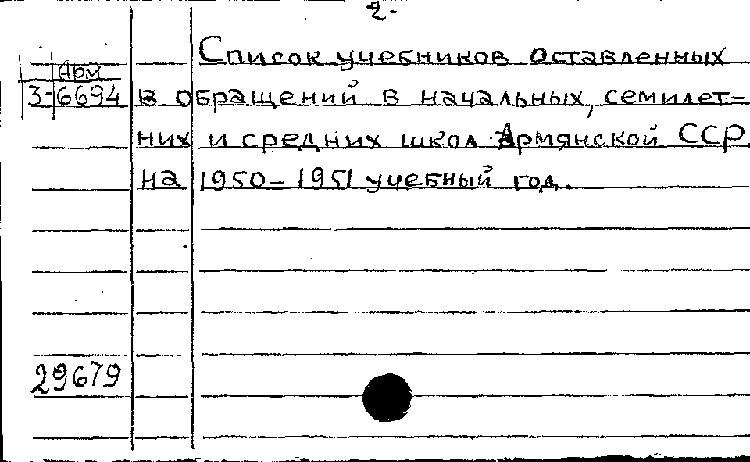 2.
Список учебников оставленных
Арм
3-6694 в обращений в начальных, семилет=
них и средних школ Армянской ССР.
на 1950-1951 учебный год.
29679